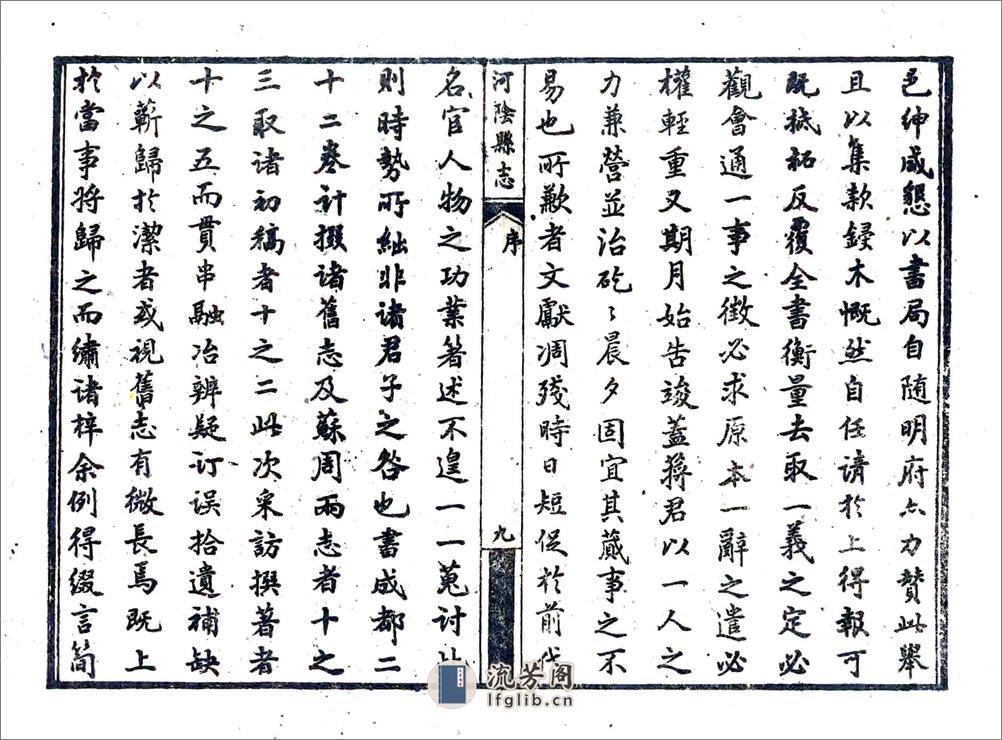 邑紳咸懇以書局自随明府亦力贊此舉
且以集款鋟木慨然自任请於上得報可
既祗祏反覆全書衡量去取一義之定必
觀會通一事之徴必求原本一辭之遣必
權輕重又期月始告竣蓋蔣君以一人之
力兼營並治矻〻晨夕固宜其蕆事之不
易也所歉者文獻凋残時日短促於前代
河陰縣志
序
九
名官人物之功業著述不遑一一蒐討
則時勢所絀非諸君子之咎也書成都二
十二卷计掇諸舊志及蘇周兩志者十之
三取诸初稿者十之二此次采訪撰著者
十之五而貫串融冶辨疑订误拾遺補缺
以蘄歸於潔者或視舊志有微長焉既上
於當事将歸之而繡诸梓余例得綴言简
流芳阁
lfglib.cn